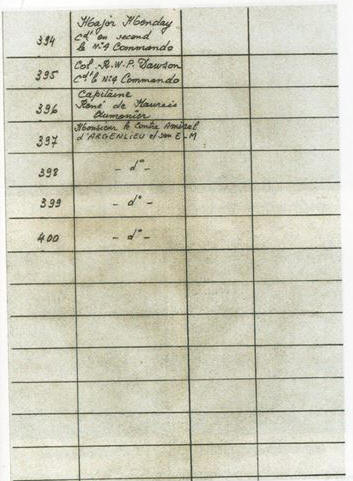 394 Major Menday
Cdt en second
le N°4 Commando
395 Col. R.W.P. Dawson
Cdt le N°4 Commando
396 Capitaine
René de Naurois
Aumonier
397 Monsieur le Contre Amiral
d'ARGENLIEU et son E-M
398 - d° -
399 - d° -
400 - d° -